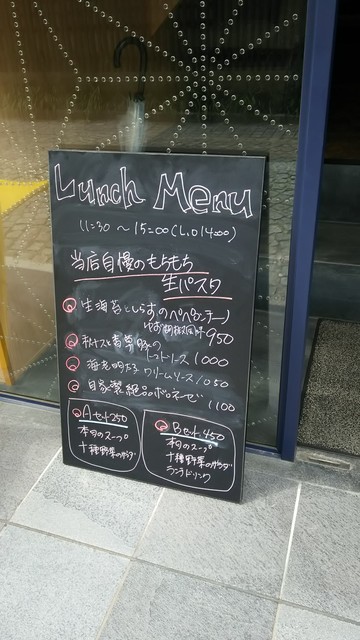 Lunch Menu
11:30 〜 15:00 (L.O 14:00)
当店自慢のもちもち
生パスタ
生海苔としらすのペペロンチーノ
ゆず胡椒風味 950
秋ナスと
トマトソース 1000
海老明太子クリームソース 1050
自家製絶品ボロネーゼ 1100
Aセット250
本日のスープ
十種野菜のサラダ
Bセット450
本日のスープ
十種野菜のサラダ
ランチドリンク